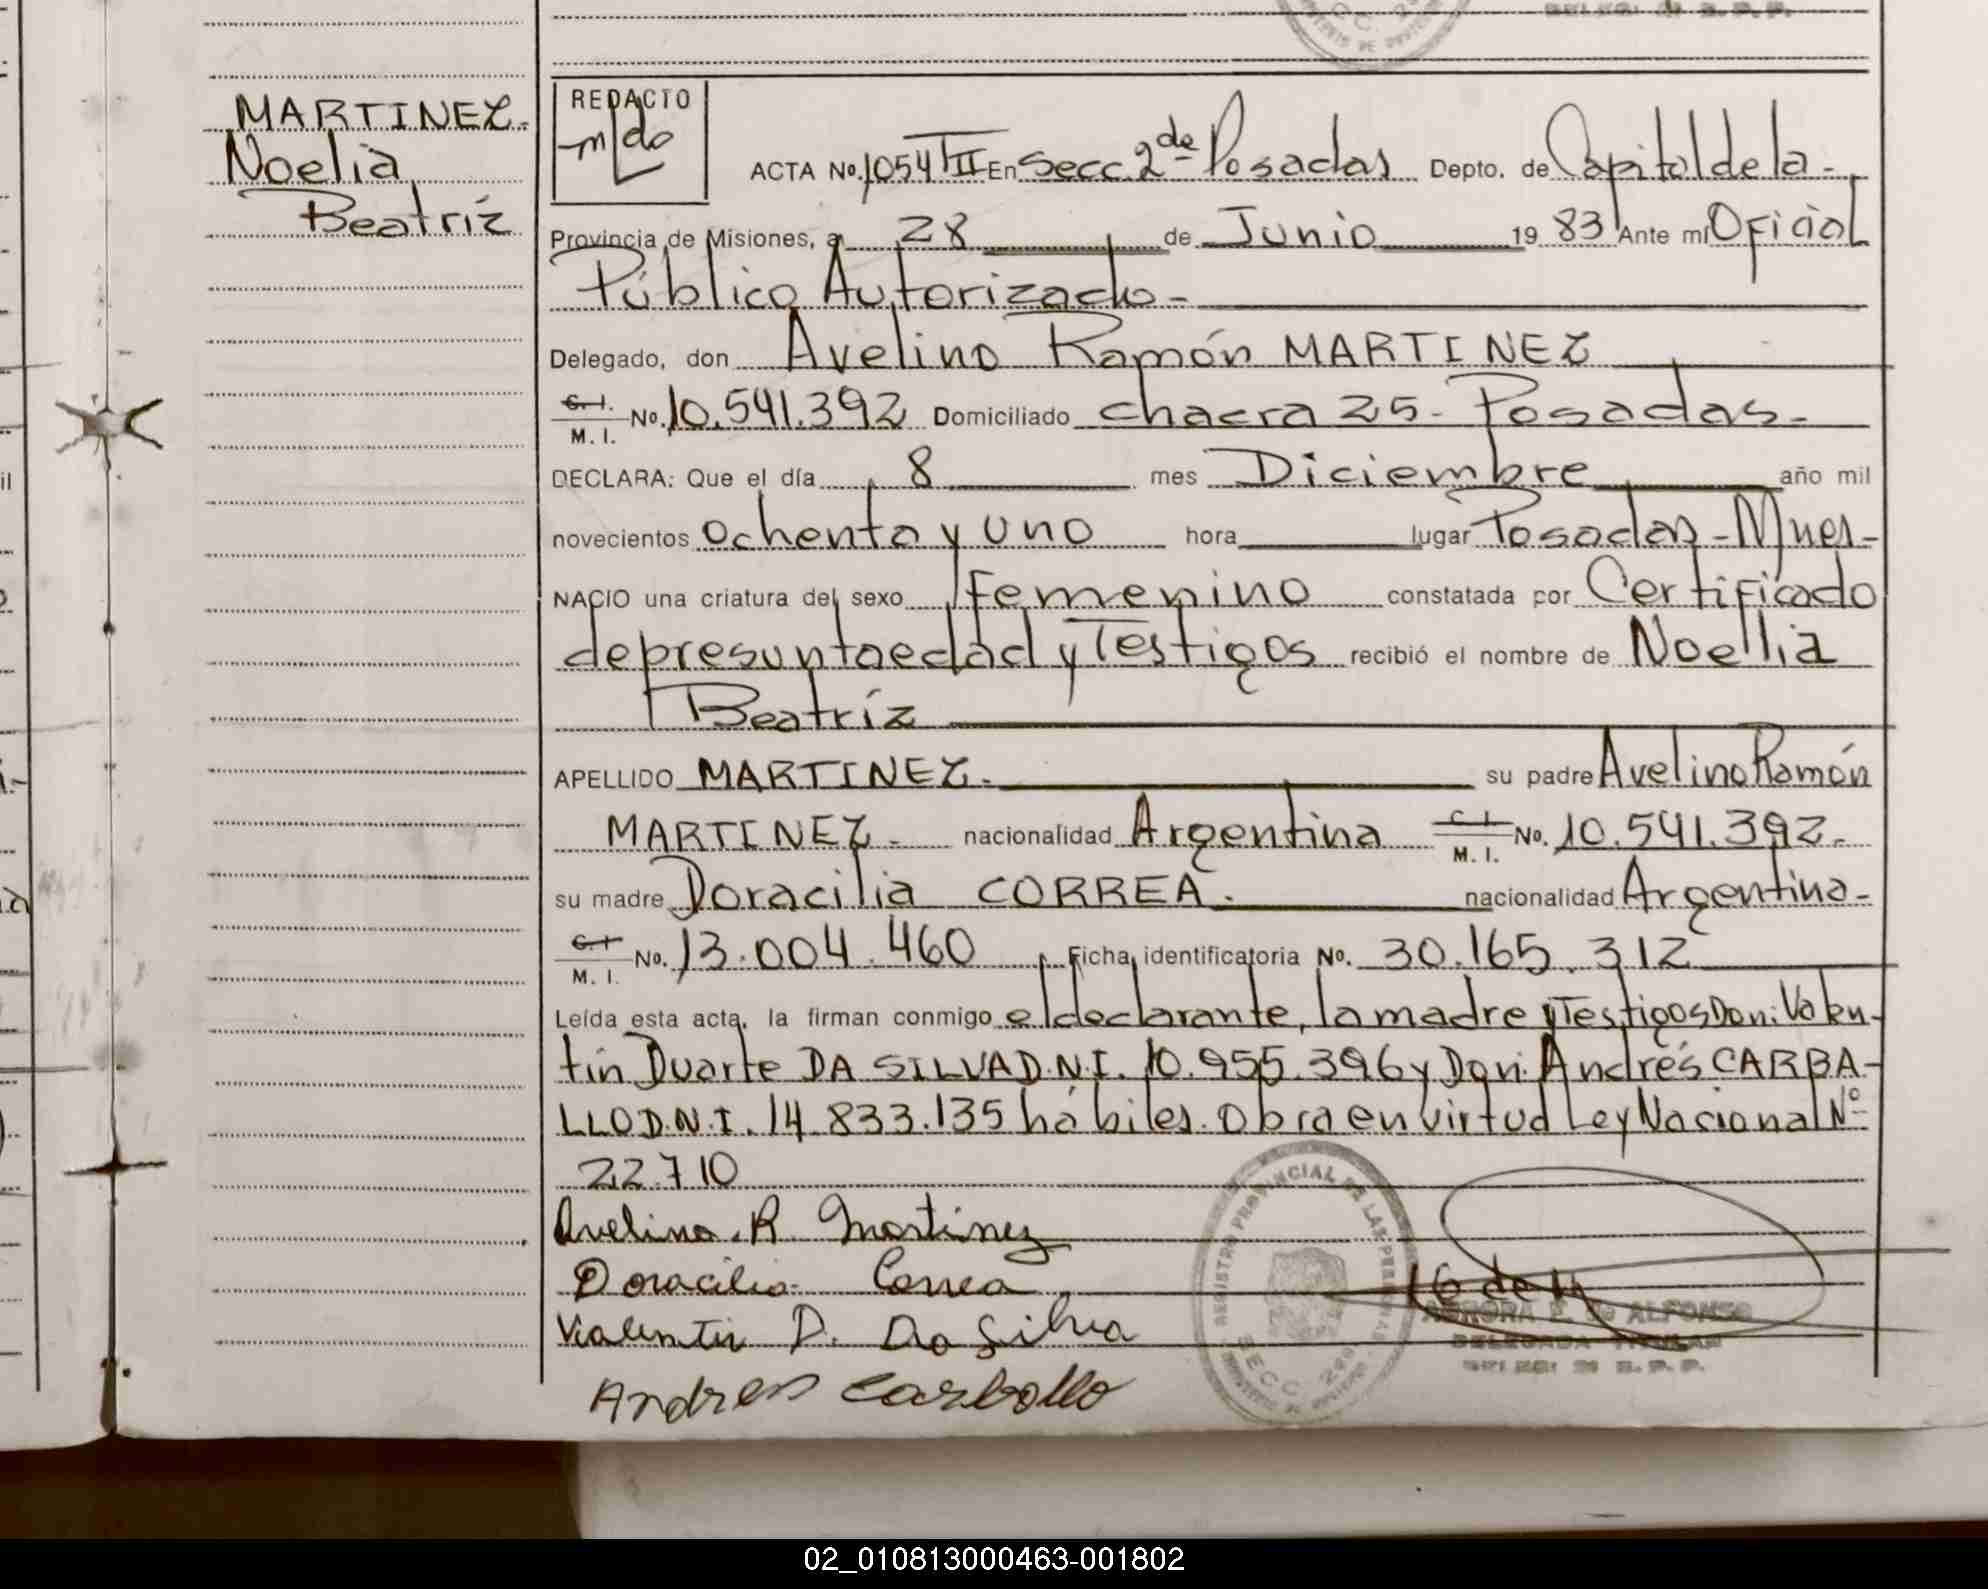 MARTINEZ.
Noelia
Beatríz
REDACTO
ACTA No. 1054 TII En Secc. 2da Posadas Depto. de Capital de la-
Provincia de Misiones, a 28 de Junio 19 83 Ante mí Oficial
Público Autorizado-
Delegado, don Avelino Ramón MARTINEZ
C. I. M. I. No. 10.541.392 Domiciliado chacra 25- Posadas-
DECLARA: Que el día 8 mes Diciembre año mil
novecientos ochenta y uno hora lugar Posadas-Mnes-
NACIO una criatura del sexo femenino constatada por Certificado
de presunta edad y Testigos recibió el nombre de Noelia
Beatríz
APELLIDO MARTINEZ. su padre Avelino Ramón
MARTINEZ- nacionalidad Argentina C. I. M. I. No. 10.541.392-
su madre Doracilia CORREA. nacionalidad Argentina-
C. I. M. I. No. 13.004.460 Ficha identificatoria No. 30.165.312
Leída esta acta, la firman conmigo el declarante, la madre y Testigos Don: Valen-
tín Duarte DA SILVA D.N.I. 10.955.396 y Don: Andrés CARBA-
LLO D.N.I. 14.833.135 hábiles. Obra en virtud Ley Nacional Nº
22.710
Avelino. R. Martinez
Doracilia Correa
Valentin D. Da Silva
Andres Carballo
REGISTRO PROVINCIAL DE LAS PERSONAS
SECC. 2da
AURORA E. de ALFONSO
DELEGADA TITULAR
02_010813000463-001802